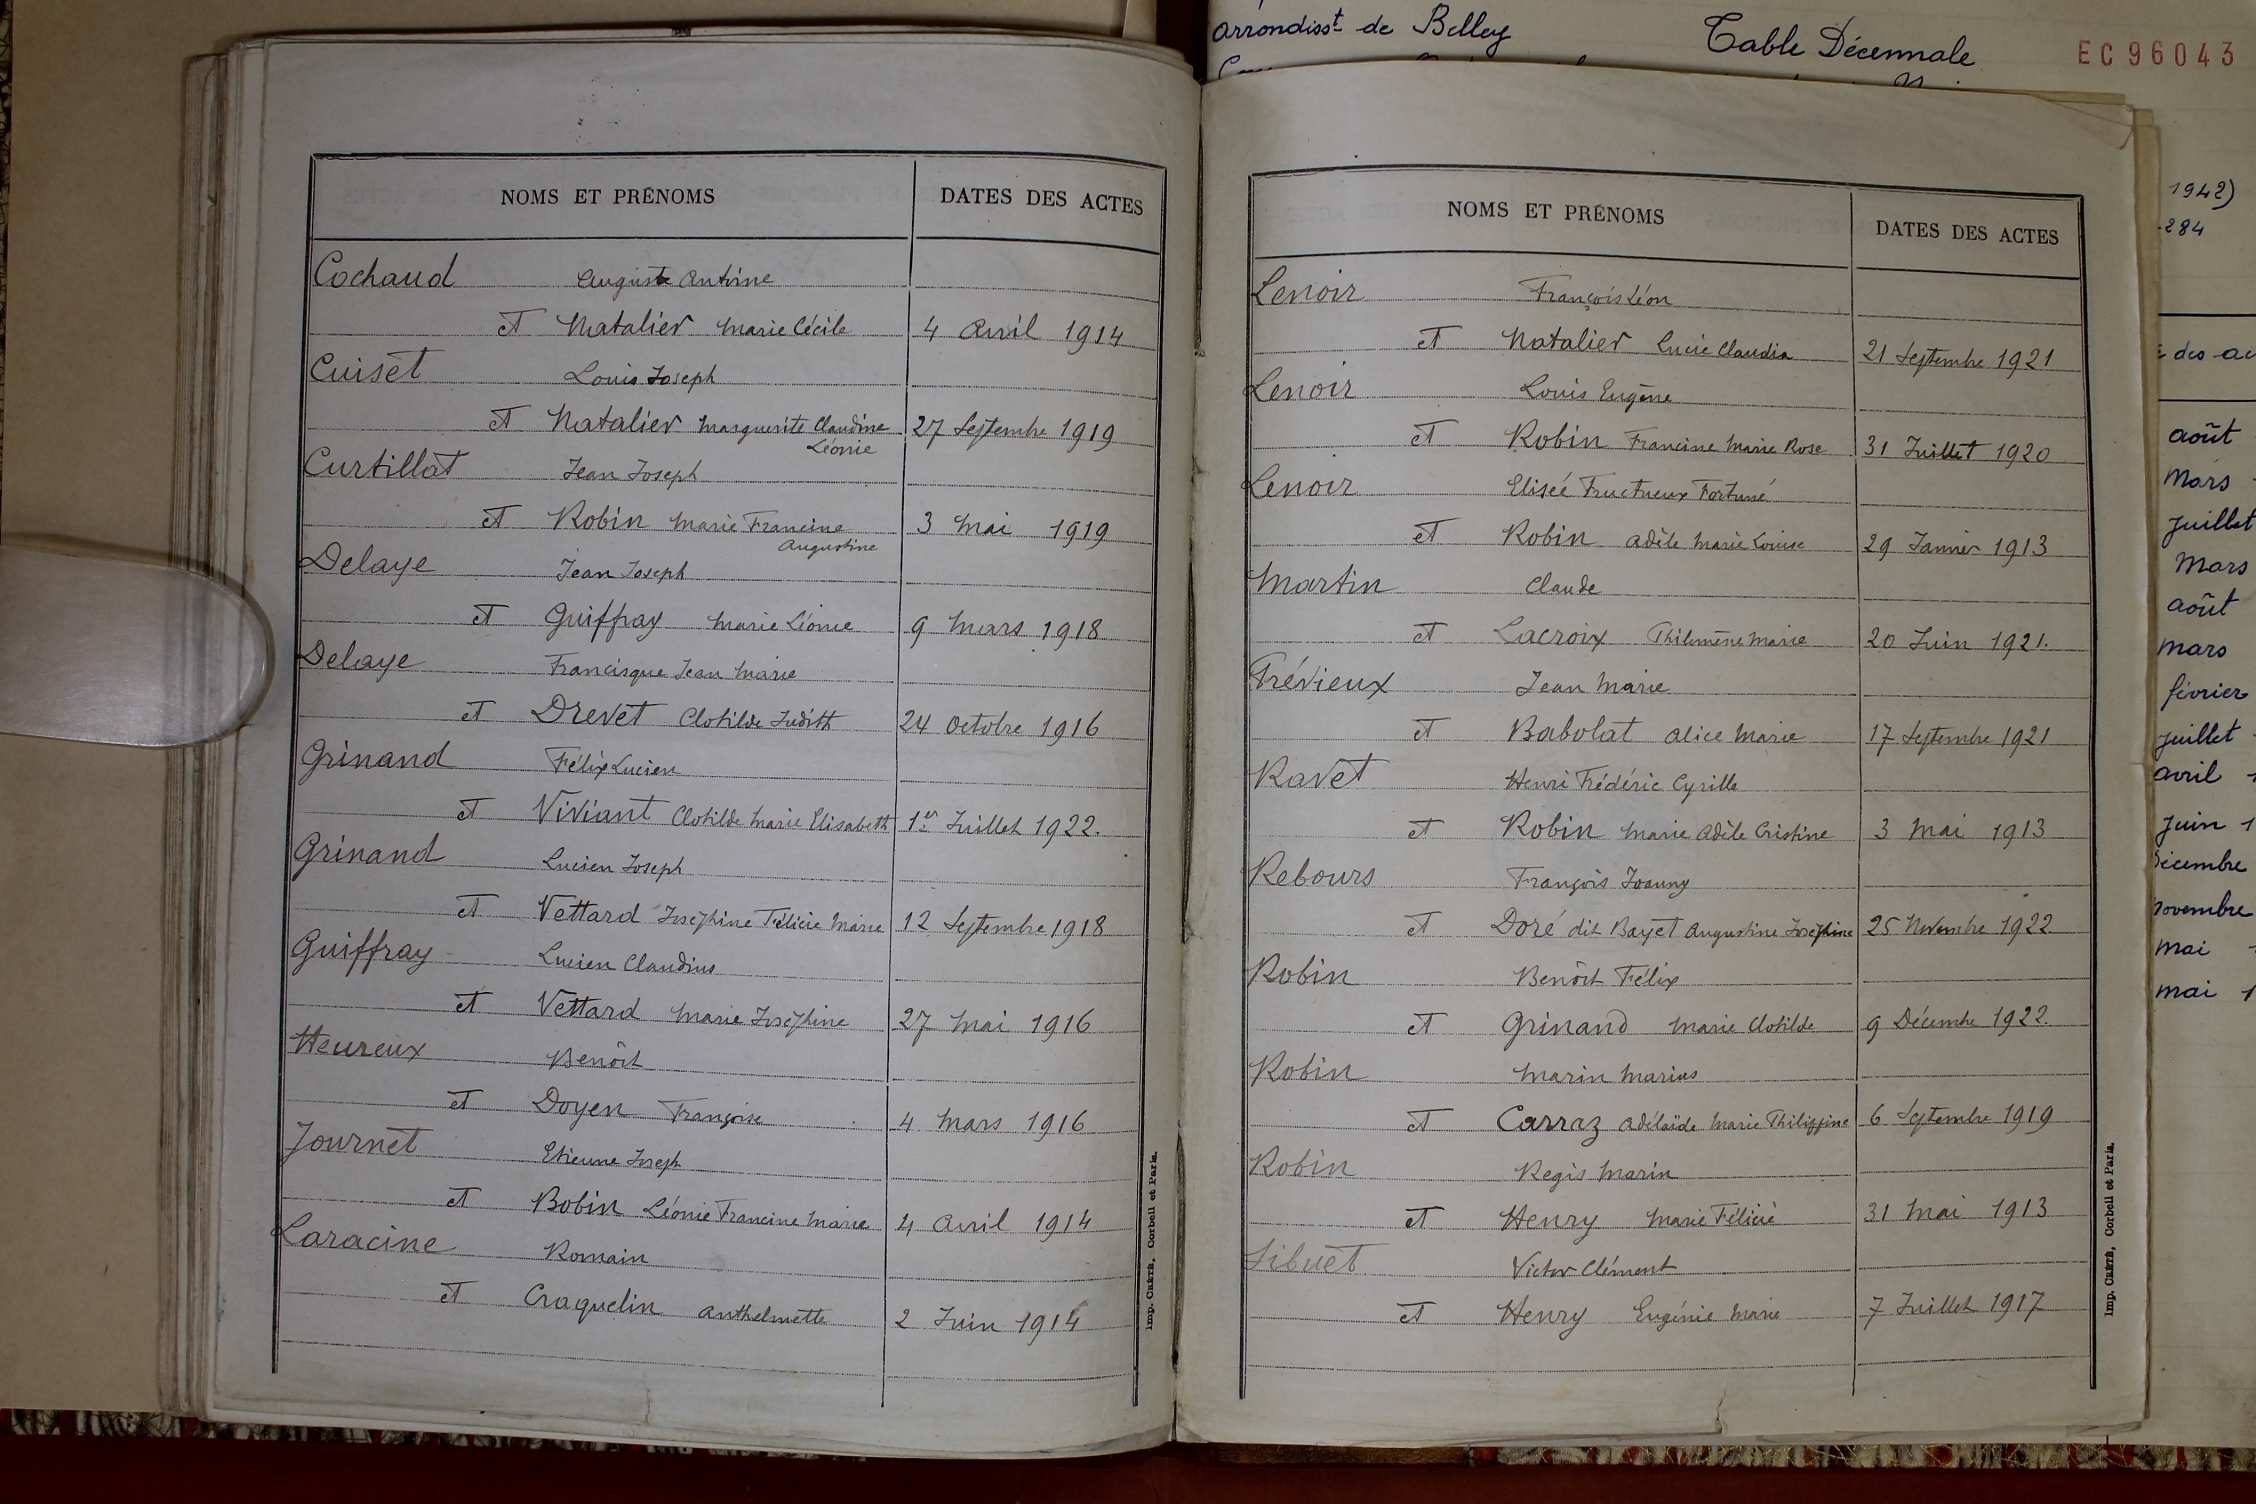 NOMS ET PRÉNOMS DATES DES ACTES
Cochaud Auguste Antoine
et Natalier Marie Cécile 4 Avril 1914
Cuiset Louis Joseph
et Natalier Marguerite Claudine 27 Septembre 1919
Léonie
Curtillat Jean Joseph
et Robin Marie Francine 3 Mai 1919
Augustine
Delaye Jean Joseph
et Guiffray Marie Léonie 9 Mars 1918
Delaye Francisque Jean Marie
et Drevet Clotilde Judith 24 Octobre 1916
Grinand Félix Lucien
et Viviant Clotilde Marie Elisabeth 1er Juillet 1922.
Grinand Lucien Joseph
et Vettard Joséphine Félicie Marie 12 Septembre 1918
Guiffray Lucien Claudius
et Vettard Marie Joséphine 27 Mai 1916
Heureux Benôit
et Doyen Françoise 4 Mars 1916
Journet Etienne Joseph
et Bobin Léonie Francine Marie 4 Avril 1914
Laracine Romain
et Craquelin Anthelmette 2 Juin 1914
Imp. Catré, Corbeil et Paris.
arrondisst de Belley Table Décennale EC96043
NOMS ET PRÉNOMS DATES DES ACTES
Lenoir François Léon
et Natalier Lucie Claudia 21 Septembre 1921
Lenoir Louis Eugène
et Robin Francine Marie Rose 31 Juillet 1920
Lenoir Eliseé Fructueux Fortuné
et Robin Adèle Marie Louise 29 Janvier 1913
Martin Claude
et Lacroix Philomène Marie 20 Juin 1921.
Trévieux Jean Marie
et Babolat Alice Marie 17 Septembre 1921
Ravet Henri Frédéric Cyrille
et Robin Marie Adèle Cristine 3 Mai 1913
Rebours François Joanny
et Doré dit Bayet Augustine Joséphine 25 Novembre 1922
Robin Benôit Félix
et Grinand Marie Clotilde 9 Décembre 1922.
Robin Marin Marius
et Carraz Adélaïde Marie Philippine 6 Septembre 1919
Robin Regis Marin
et Henry Marie Félicie 31 Mai 1913
Sibuet Victor Clément
et Henry Eugénie Marie 7 Juillet 1917
Imp. Catré, Corbeil et Paris.
1942)
284
des ac
août
Mars
juillet
Mars
août
mars
février
juillet
avril
juin 1
décembre
novembre
mai
mai 1